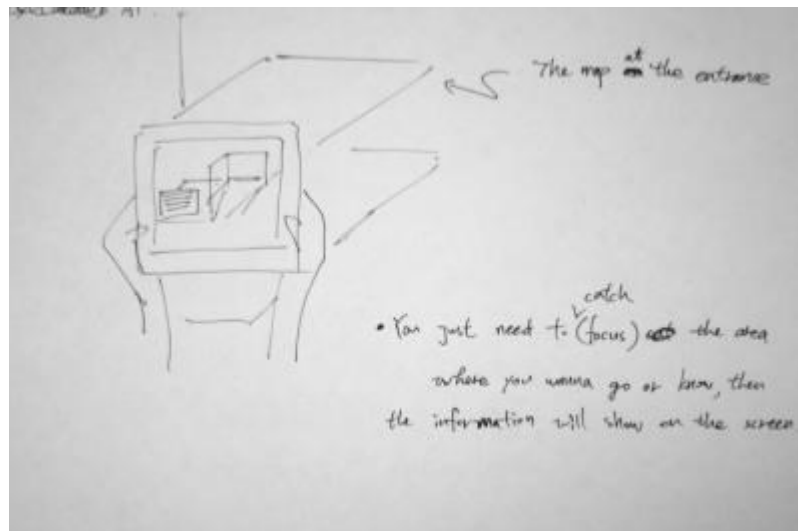 The map at the entrance
catch
• You just need to (focus) the area
where you wanna go or know, then
the information will show on the screen